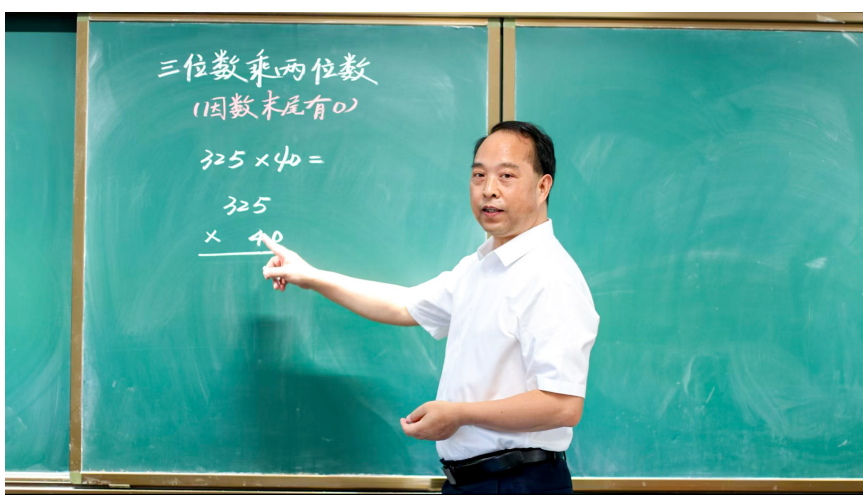 三位数乘两位数
(因数末尾有0)
325×40=
325
× 40